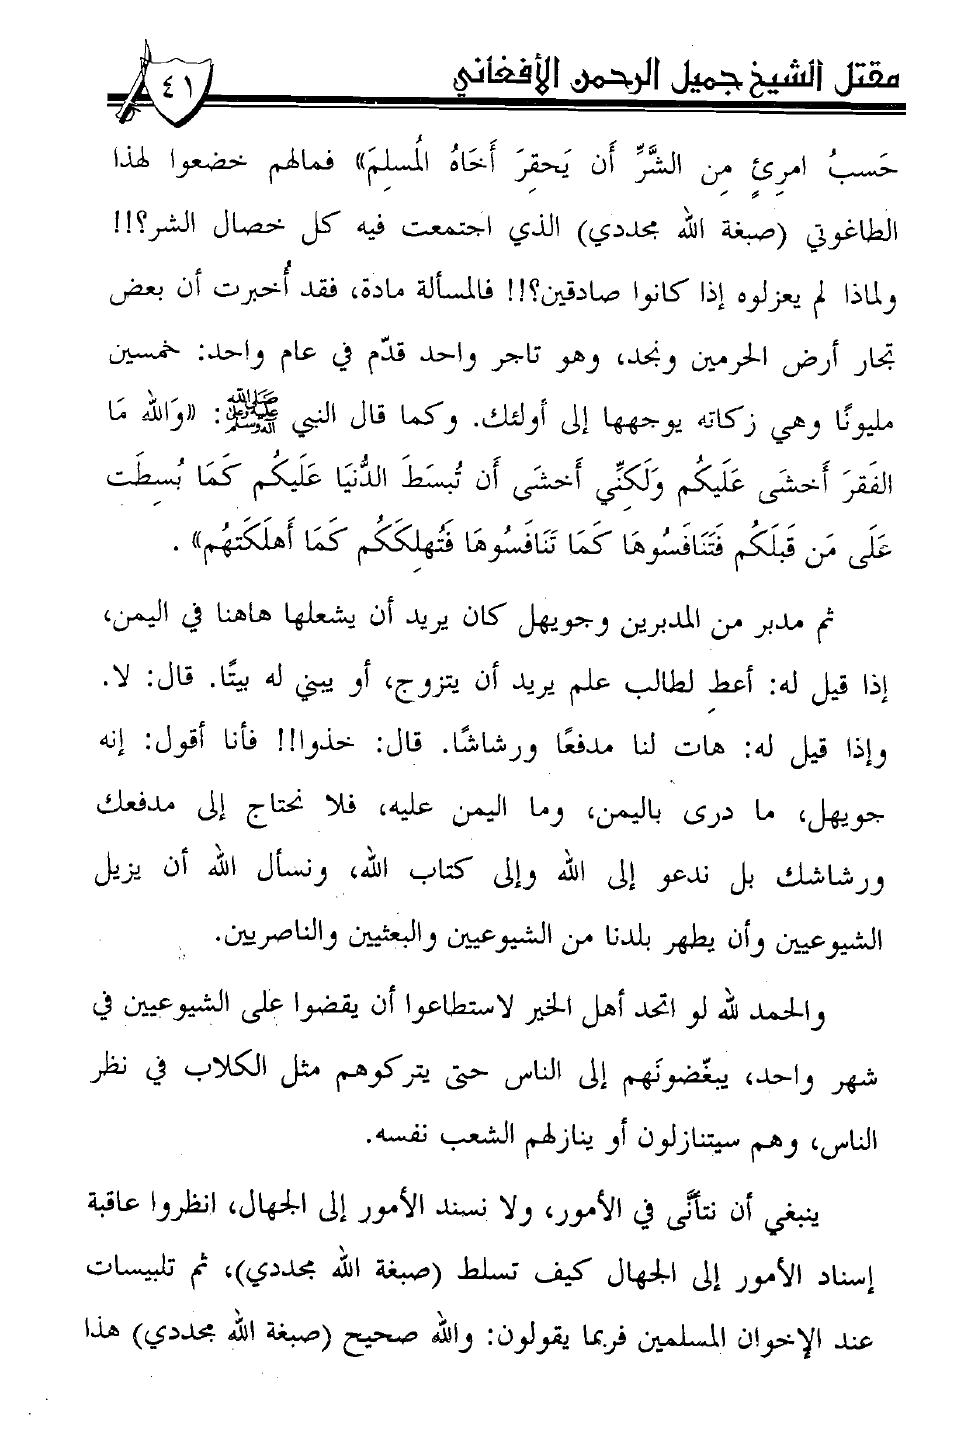 مقتل الشيخ جميل الرحمن الأفغاني
٤١
حَسبُ امرِئٍ مِن الشَّرِّ أَن يَحقِرَ أَخَاهُ المُسلِمَ» فمالهم خضعوا لهذا
الطاغوتي (صبغة الله مجددي) الذي اجتمعت فيه كل خصال الشر؟!!
ولماذا لم يعزلوه إذا كانوا صادقين؟!! فالمسألة مادة، فقد أُخبرت أن بعض
تجار أرض الحرمين ونجد، وهو تاجر واحد قدّم في عام واحد: خمسين
مليونًا وهي زكاته يوجهها إلى أولئك. وكما قال النبي ﷺ: «وَالله مَا
الفَقرَ أَخشَى عَلَيكُم وَلَكِنِّي أَخشَى أَن تُبسَطَ الدُّنيَا عَلَيكُم كَمَا بُسِطَت
عَلَى مَن قَبلَكُم فَتَنَافَسُوهَا كَمَا تَنَافَسُوهَا فَتُهلِكَكُم كَمَا أَهلَكَتهُم» .
ثم مدبر من المدبرين وجويهل كان يريد أن يشعلها هاهنا في اليمن،
إذا قيل له: أعطِ لطالب علم يريد أن يتزوج، أو يبني له بيتًا. قال: لا.
وإذا قيل له: هات لنا مدفعًا ورشاشًا. قال: خذوا!! فأنا أقول: إنه
جويهل، ما درى باليمن، وما اليمن عليه، فلا نحتاج إلى مدفعك
ورشاشك بل ندعو إلى الله وإلى كتاب الله، ونسأل الله أن يزيل
الشيوعيين وأن يطهر بلدنا من الشيوعيين والبعثيين والناصريين.
والحمد لله لو اتحد أهل الخير لاستطاعوا أن يقضوا على الشيوعيين في
شهر واحد، يبغّضونَهم إلى الناس حتى يتركوهم مثل الكلاب في نظر
الناس، وهم سيتنازلون أو ينازلهم الشعب نفسه.
ينبغي أن نتأنَّى في الأمور، ولا نسند الأمور إلى الجهال، انظروا عاقبة
إسناد الأمور إلى الجهال كيف تسلط (صبغة الله مجددي)، ثم تلبيسات
عند الإخوان المسلمين فربما يقولون: والله صحيح (صبغة الله مجددي) هذا